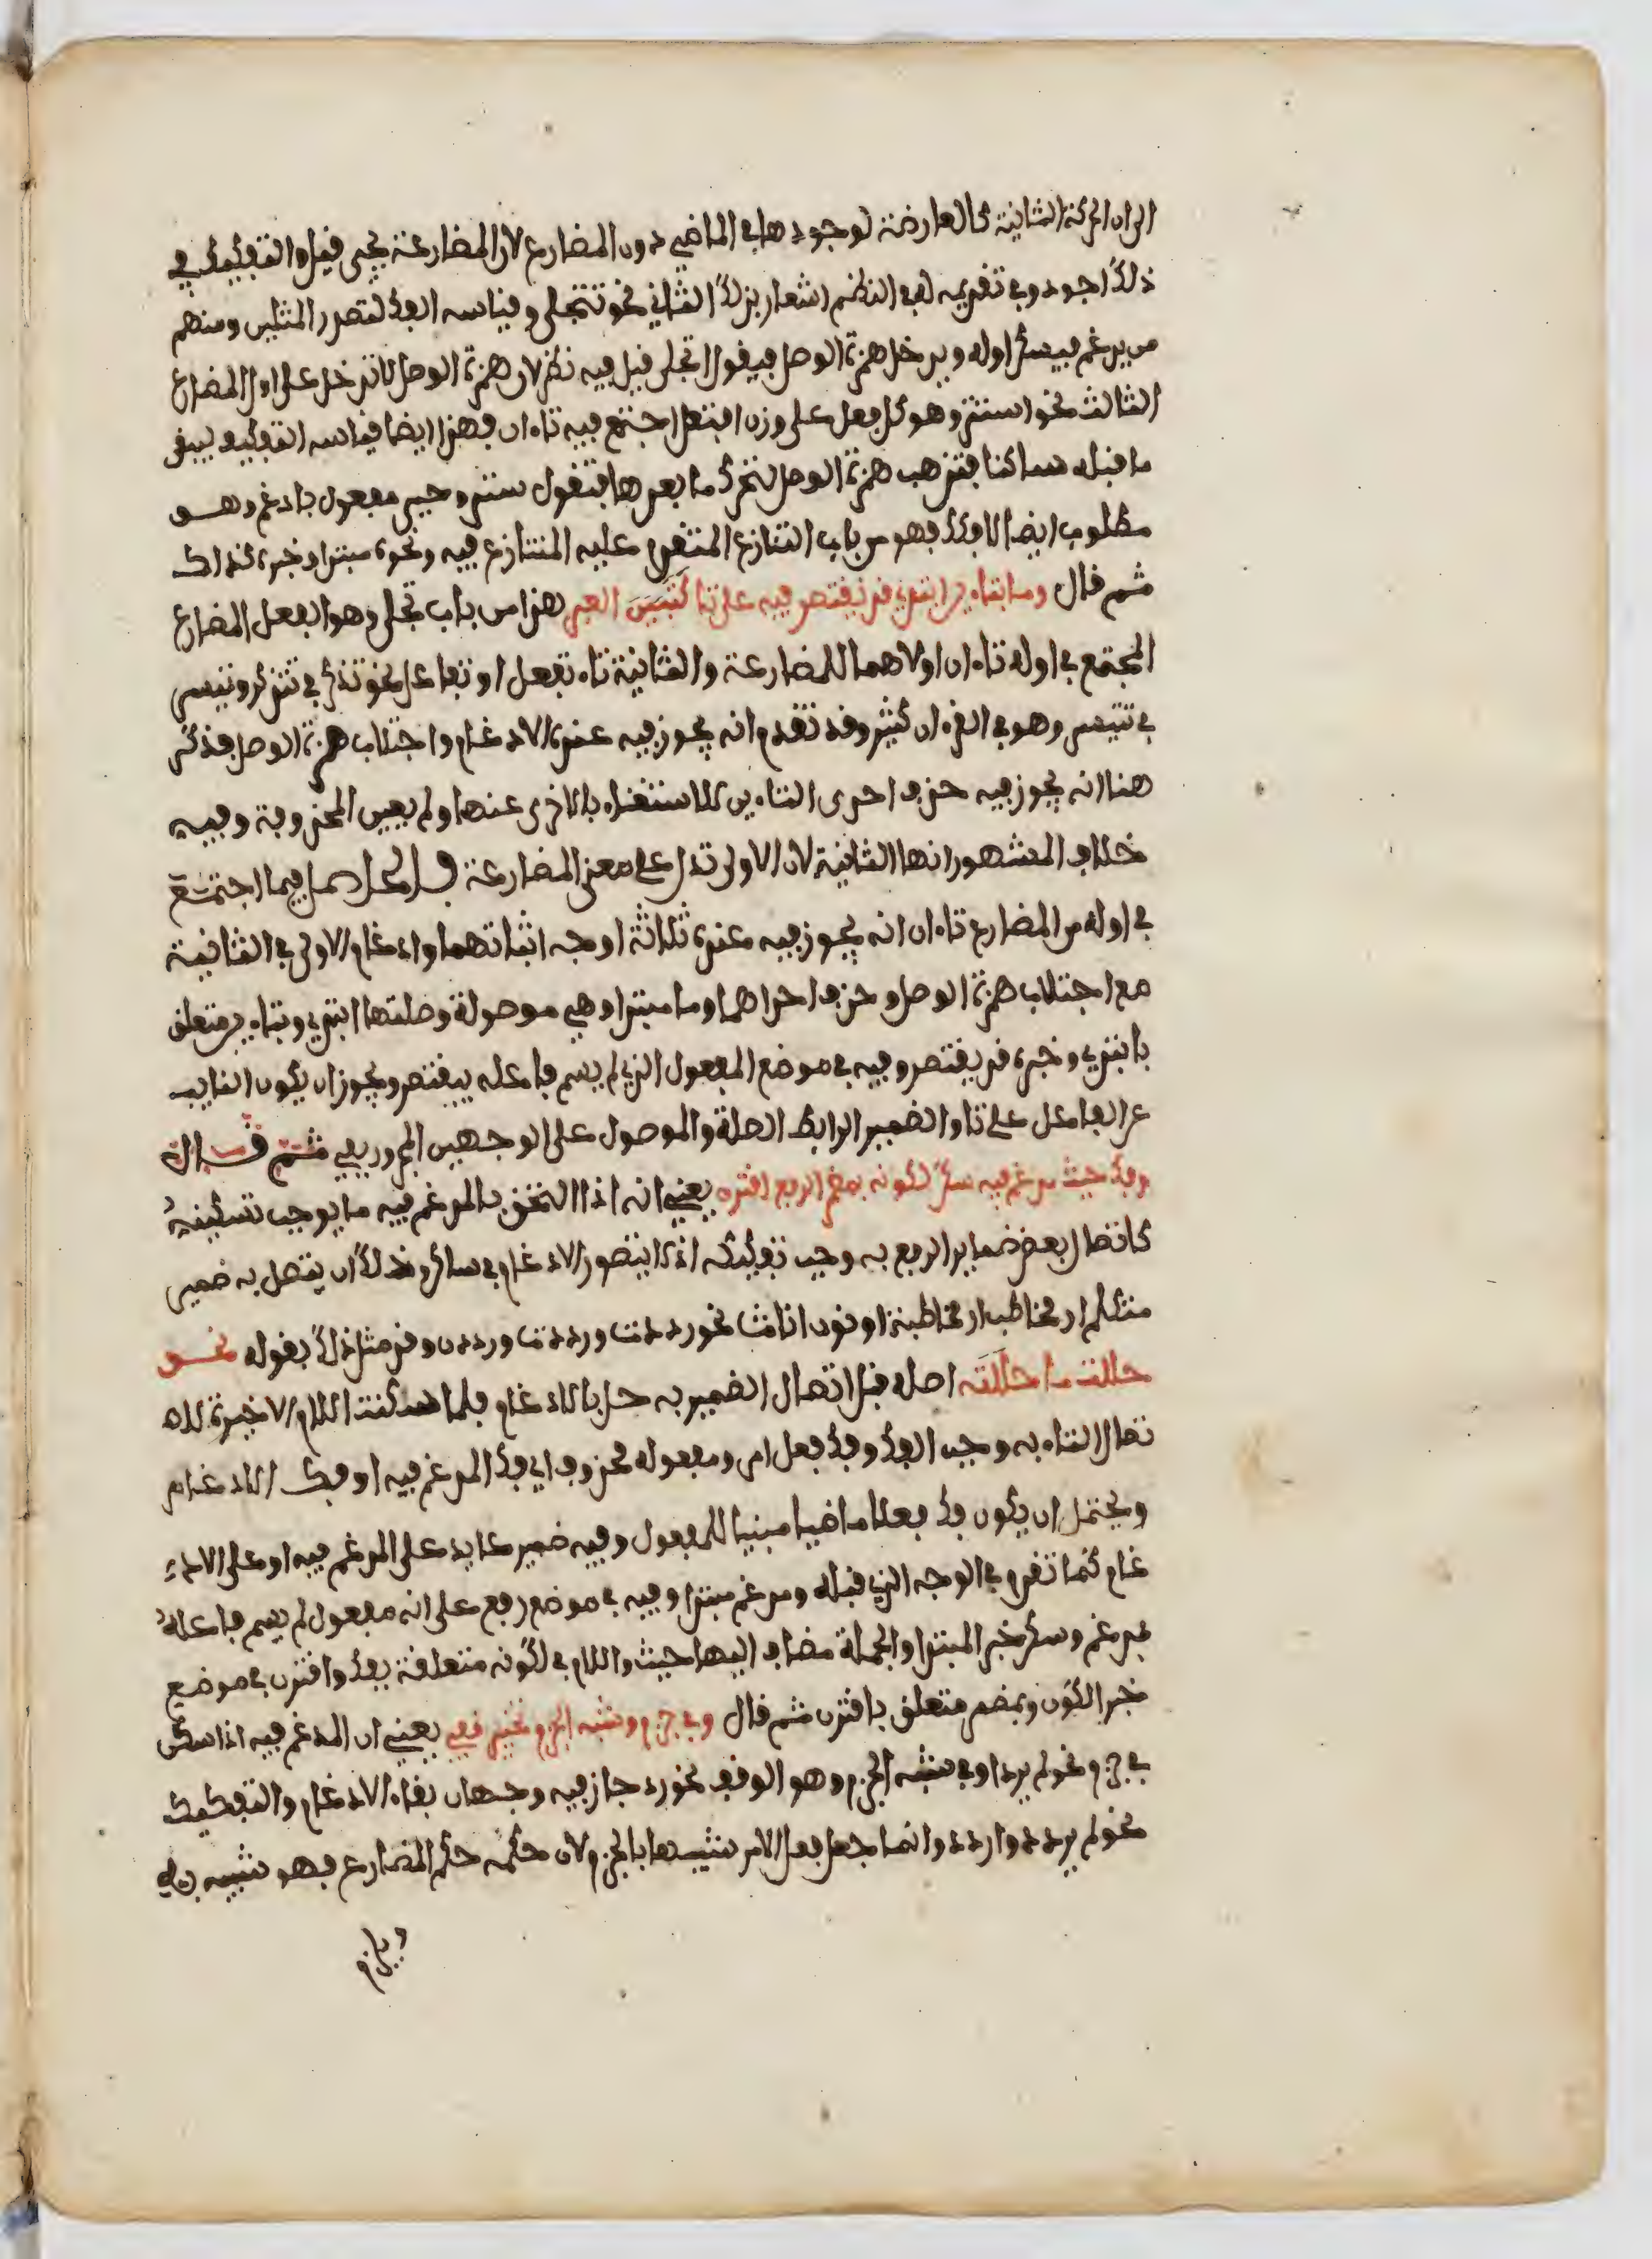 الى ان الحركة الثانية كالعارضة لوجودها في الماضي دون المضارع لان المضارعة يحيى قيل والتفكيك في
ذلك اجود وفي تقديمه له في النظم اشعار بذلك الثاني نحو تتجلى وقياسه الفك لتصدر المثلين ومنهم
من يدغم فيسكن اوله ويدخل همزة الوصل فيقول اتجلى قيل فيه نظر لان همزة الوصل لا تدخل على اول المضارع
الثالث نحو استتر وهو كل فعل على وزن افتعل اجتمع فيه تاءان فهذا ايضا قياسه التفكيك ليبقى
ما قبله ساكنا فتذهب همزة الوصل لتحرك ما بعدها فتقول ستر وحيي مفعول بادغم وهو
مطلوب ايضا لافكك فهو من باب التنازع المتقدم عليه المتنازع فيه ونحو مبتدا وخبره كذاك
ثم قال وما بتاءين ابتدي قد يقتصر فيه على تا كتبين العبر هذا من باب تجلى وهو الفعل المضارع
المجتمع في اوله تاءان اولاهما للمضارعة والثانية تاء تفعل او تفاعل نحو تذكر في تتذكر وتيسر
في تتيسر وهو في القرءان كثير وقد تقدم انه يجوز فيه عنده الادغام واجتلاب همزة الوصل فذكر
هنا انه يجوز فيه حذف احدى التاءين للاستغناء بالاخرى عنها ولم يعين المحذوفة وفيه
خلاف المشهور انها الثانية لان الاولى تدل على معنى المضارعة فيما اجتمع
في اوله من المضارع تاءان انه يجوز فيه عنده ثلاثة اوجه اثباتهما وادغام الاولى في الثانية
مع اجتلاب همزة الوصل وحذف احداهما وما مبتدا وهي موصولة وصلتها ابتدي وبتاءين متعلق
بابتدي وخبره قد يقتصر وفيه في موضع المفعول الذي لم يسم فاعله بيقتصر ويجوز ان يكون النايب
عن الفاعل على تا والضمير الرابط الصلة والموصول على الوجهين المجرور بفي ثم قال
وفك حيث مدغم فيه سكن لكونه بمضمر الرفع اقترن يعني انه اذا التحق بالمدغم فيه ما يوجب تسكينه
كاتصال بعض ضماير الرفع به وجب تفكيكه اذ لا يتصور الادغام في ساكن وذلك ان يتصل به ضمير
متكلم او مخاطب او مخاطبة او نون اناث نحو رددت ورددت ورددن وقد مثل ذلك بقوله نحو
حللت ما حللته اصله قبل اتصال الضمير به حل بالادغام فلما سكنت اللام الاخيرة لا
تصال التاء به وجب الفك وفك فعل امر ومفعوله محذوف اي فك المدغم فيه او فك الادغام
ويحتمل ان يكون فك فعلا ماضيا مبنيا للمفعول وفيه ضمير عايد على المدغم فيه او على الاد
غام كما تقدم في الوجه الذي قبله ومدغم مبتدا وفيه في موضع رفع على انه مفعول لم يسم فاعله
بمدغم وسكن خبر المبتدا والجملة مضاف اليها حيث واللام في لكونه متعلقة بفك واقترن في موضع
خبر الكون وبمضمر متعلق باقترن ثم قال وفي جزم وشبه الجزم تخيير قفي يعني ان المدغم فيه اذا سكن
في جزم نحو لم يرد او في شبه الجزم وهو الوقف نحو رد جاز فيه وجهان بقاء الادغام والتفكيك
نحو لم يردد واردد وانما جعل فعل الامر شبيها بالجزم لان حكمه حكم المضارع فهو شبيه به